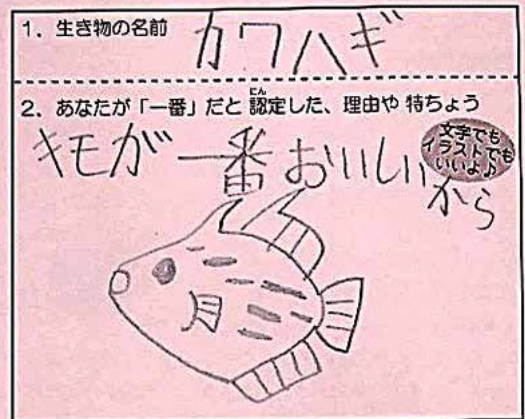 1. 生き物の名前
カワハギ
2. あなたが「一番」だと認定した、理由や特ちょう
にん
キモが一番おいしい
から
文字でも
イラストでも
いいよ♪